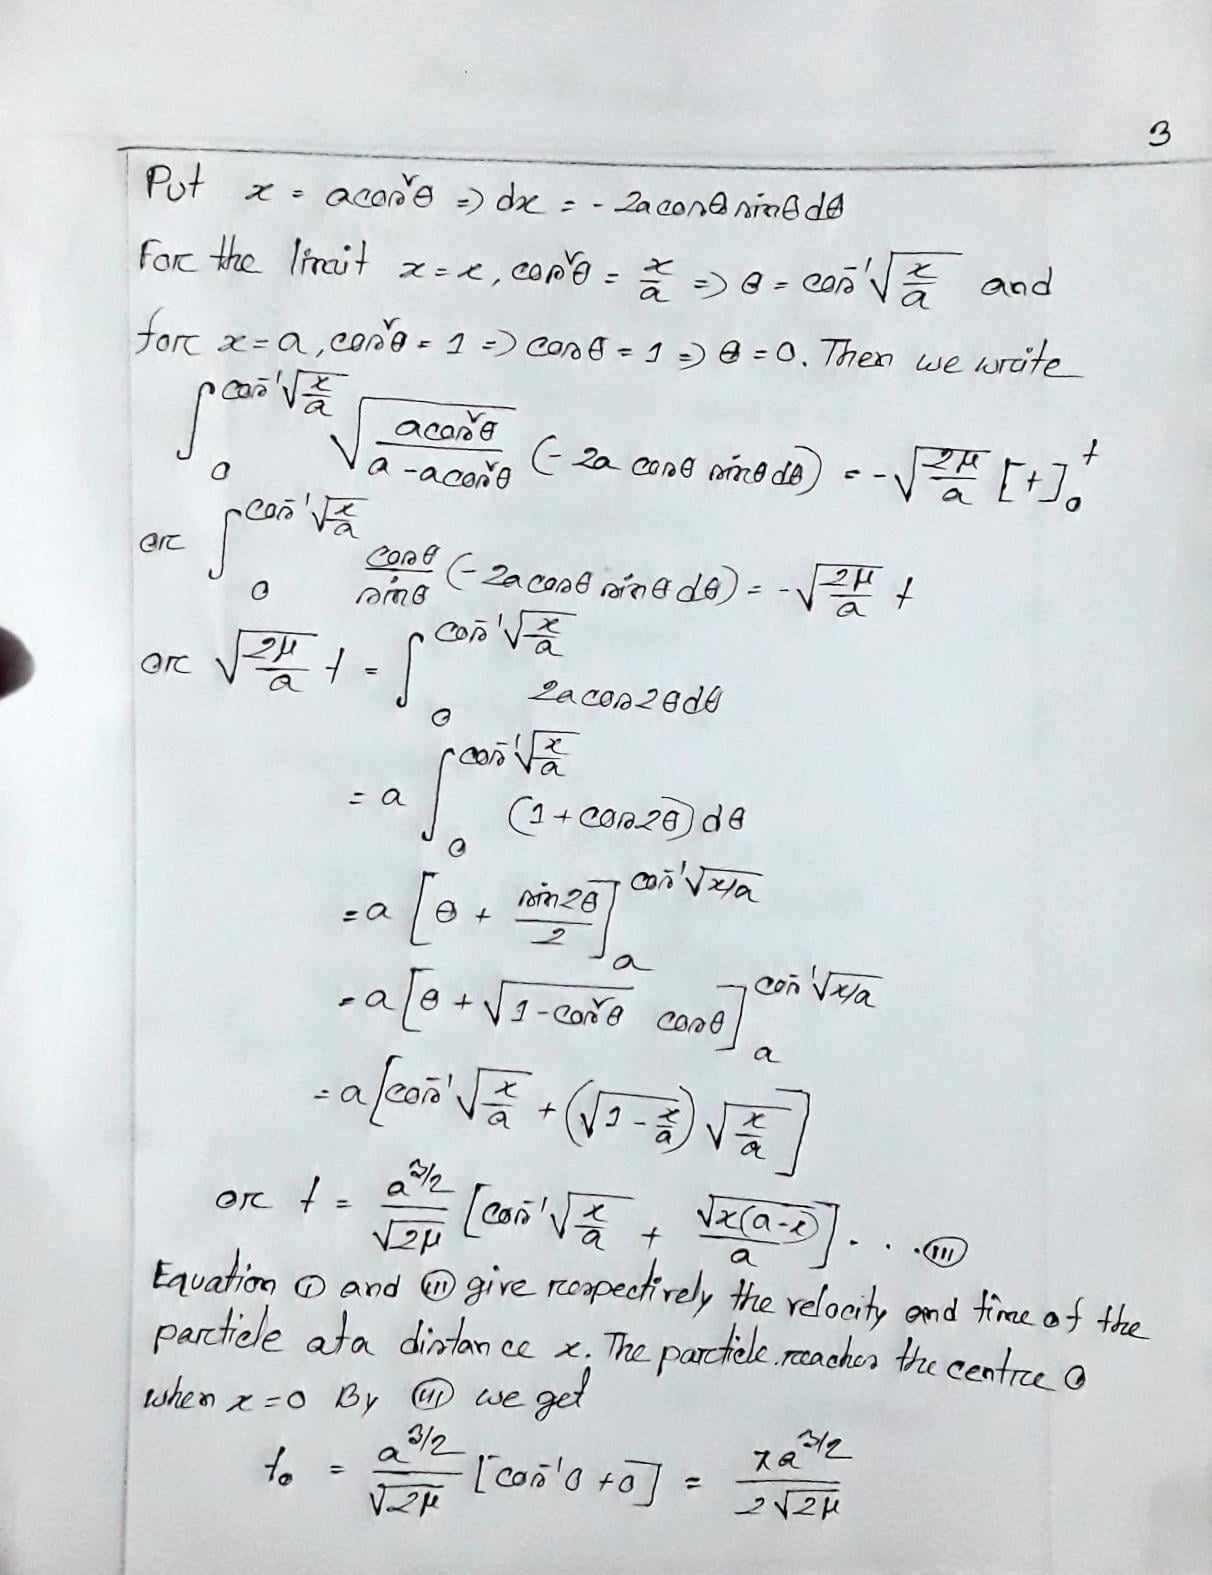 3
Put x = acos²θ => dx = - 2a cosθ sinθ dθ
For the limit x = x, cos²θ = x/a => θ = cos⁻¹√(x/a) and
for x = a, cos²θ = 1 => cosθ = 1 => θ = 0. Then we write
∫₀^(cos⁻¹√(x/a)) √(acos²θ/(a - acos²θ)) (- 2a cosθ sinθ dθ) = - √(2μ/a) [t]₀^t
or ∫₀^(cos⁻¹√(x/a)) cosθ/sinθ (- 2a cosθ sinθ dθ) = - √(2μ/a) t
or √(2μ/a) t = ∫₀^(cos⁻¹√(x/a)) 2a cos2θ dθ
= a ∫₀^(cos⁻¹√(x/a)) (1 + cos2θ) dθ
= a [θ + sin2θ/2]ₐ^(cos⁻¹√(x/a))
= a [θ + √(1 - cos²θ) cosθ]ₐ^(cos⁻¹√(x/a))
= a [cos⁻¹√(x/a) + (√(1 - x/a)) √(x/a)]
or t = a^(3/2)/√(2μ) [cos⁻¹√(x/a) + √(x(a-x))/a] . . . (iii)
Equation (i) and (iii) give respectively the velocity and time of the
particle at a distance x. The particle reaches the centre O
when x = 0 By (iii) we get
t₀ = a^(3/2)/√(2μ) [cos⁻¹0 + 0] = πa^(3/2)/(2√(2μ))